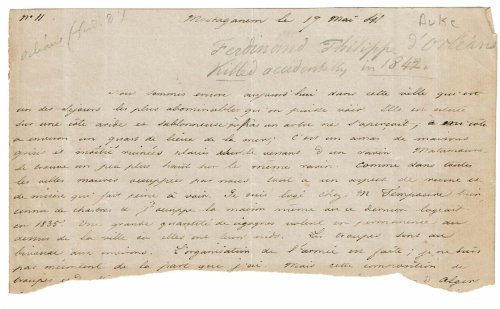 No 11
Mostaganem le 19 Mai 41
Duke
Orléans (Ferd. d')
Ferdinand Philippe d'Orléans
Killed accidentally in 1842.
Nous sommes encore aujourd'hui dans cette ville qui est
un des séjours les plus abominables qu'on puisse voir. Elle est située
sur une côte aride et sablonneuse, pas un arbre ne s'aperçoit, à mi côte
à environ un quart de lieue de la mer; c'est un amas de maisons
grises et moitié ruinées placées sur le versant d'un ravin. Matamaure
se trouve un peu plus haut sur le même ravin. Comme dans toutes
les villes maures occupées par nous tout a un aspect de ruine et
de misère qui fait peine à voir. Je suis logé chez M
connu de Chartres et j'occupe la maison même où ce dernier logeait
en 1835. Une grande quantité de cigognes volent en permanence au
dessus de la ville où elles ont leurs nids. Les troupes sont au
bivouac aux environs. L'organisation de l'armée est faite, je ne suis
pas mécontent de la part que j'ai. Mais cette composition de
troupes Alger